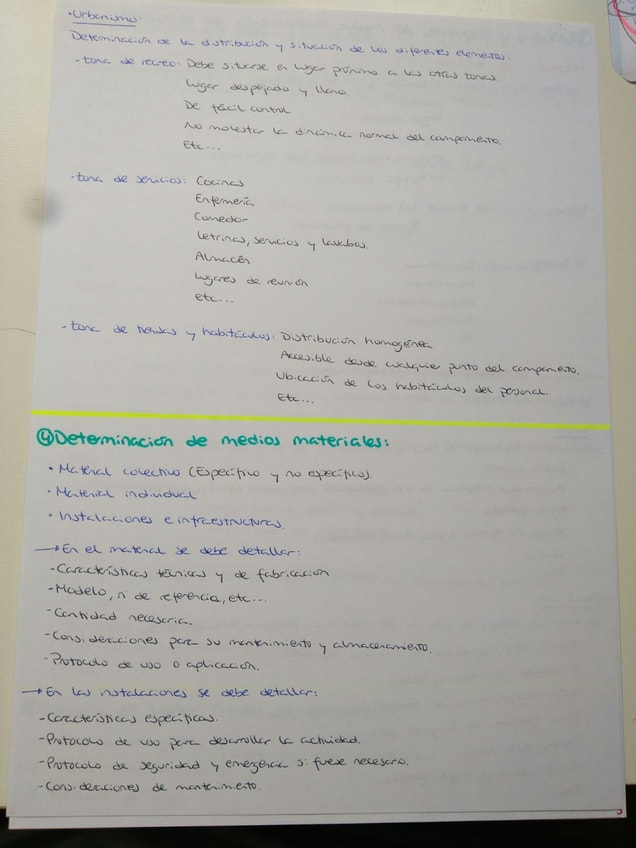 ·Urbanismo
Determinación de la distribución y situación de los diferentes elementos:
-Zona de recreo: Debe situarse en lugar próximo a las otras zonas.
Lugar despejado y llano.
De fácil control
No molestar la dinámica normal del campamento.
Etc...
-Zona de servicios: Cocinas
Enfermería
Comedor
Letrinas, servicios y lavabos.
Almacén
Lugares de reunión
Etc...
-Zona de tiendas y habitáculos: Distribución homogénea
Accesible desde cualquier punto del campamento.
Ubicación de los habitáculos del personal.
Etc...
④Determinación de medios materiales:
• Material colectivo (Específico y no específico).
• Material individual
• Instalaciones e infraestructuras.
→En el material se debe detallar:
-Características técnicas y de fabricación
-Modelo, nº de referencia, etc...
-Cantidad necesaria.
-Consideraciones para su mantenimiento y almacenamiento.
-Protocolo de uso o aplicación.
→En las instalaciones se debe detallar:
-Características específicas.
-Protocolo de uso para desarrollar la actividad.
-Protocolo de seguridad y emergencia si fuese necesario.
-Consideraciones de mantenimiento.